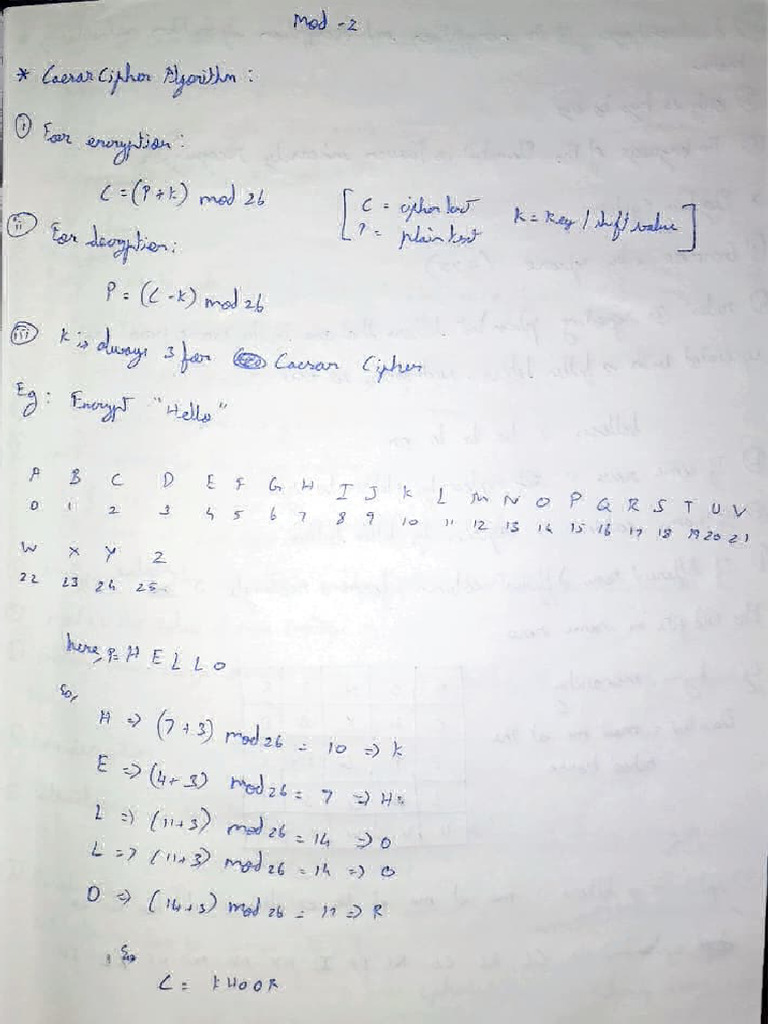 Mod - 2
* Caesar Cipher Algorithm :
(i) For encryption :
C = (P + k) mod 26 [ C = cipher text K = Key / shift value ]
P = plain text
(ii) For decryption :
P = (C - k) mod 26
(iii) K is always 3 for Caesar Cipher
Eg : Encrypt "Hello"
A B C D E F G H I J K L M N O P Q R S T U V
0 1 2 3 4 5 6 7 8 9 10 11 12 13 14 15 16 17 18 19 20 21
W X Y Z
22 23 24 25
here, P = H E L L O
So,
H => (7 + 3) mod 26 = 10 => K
E => (4 + 3) mod 26 = 7 => H
L => (11 + 3) mod 26 = 14 => O
L => (11 + 3) mod 26 = 14 => O
O => (14 + 3) mod 26 = 17 => R
So
C = KHOOR